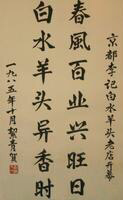 京都李记白水羊头老店开幕
春風百业兴旺日
白水羊头异香时
一九八五年十月 絜青賀